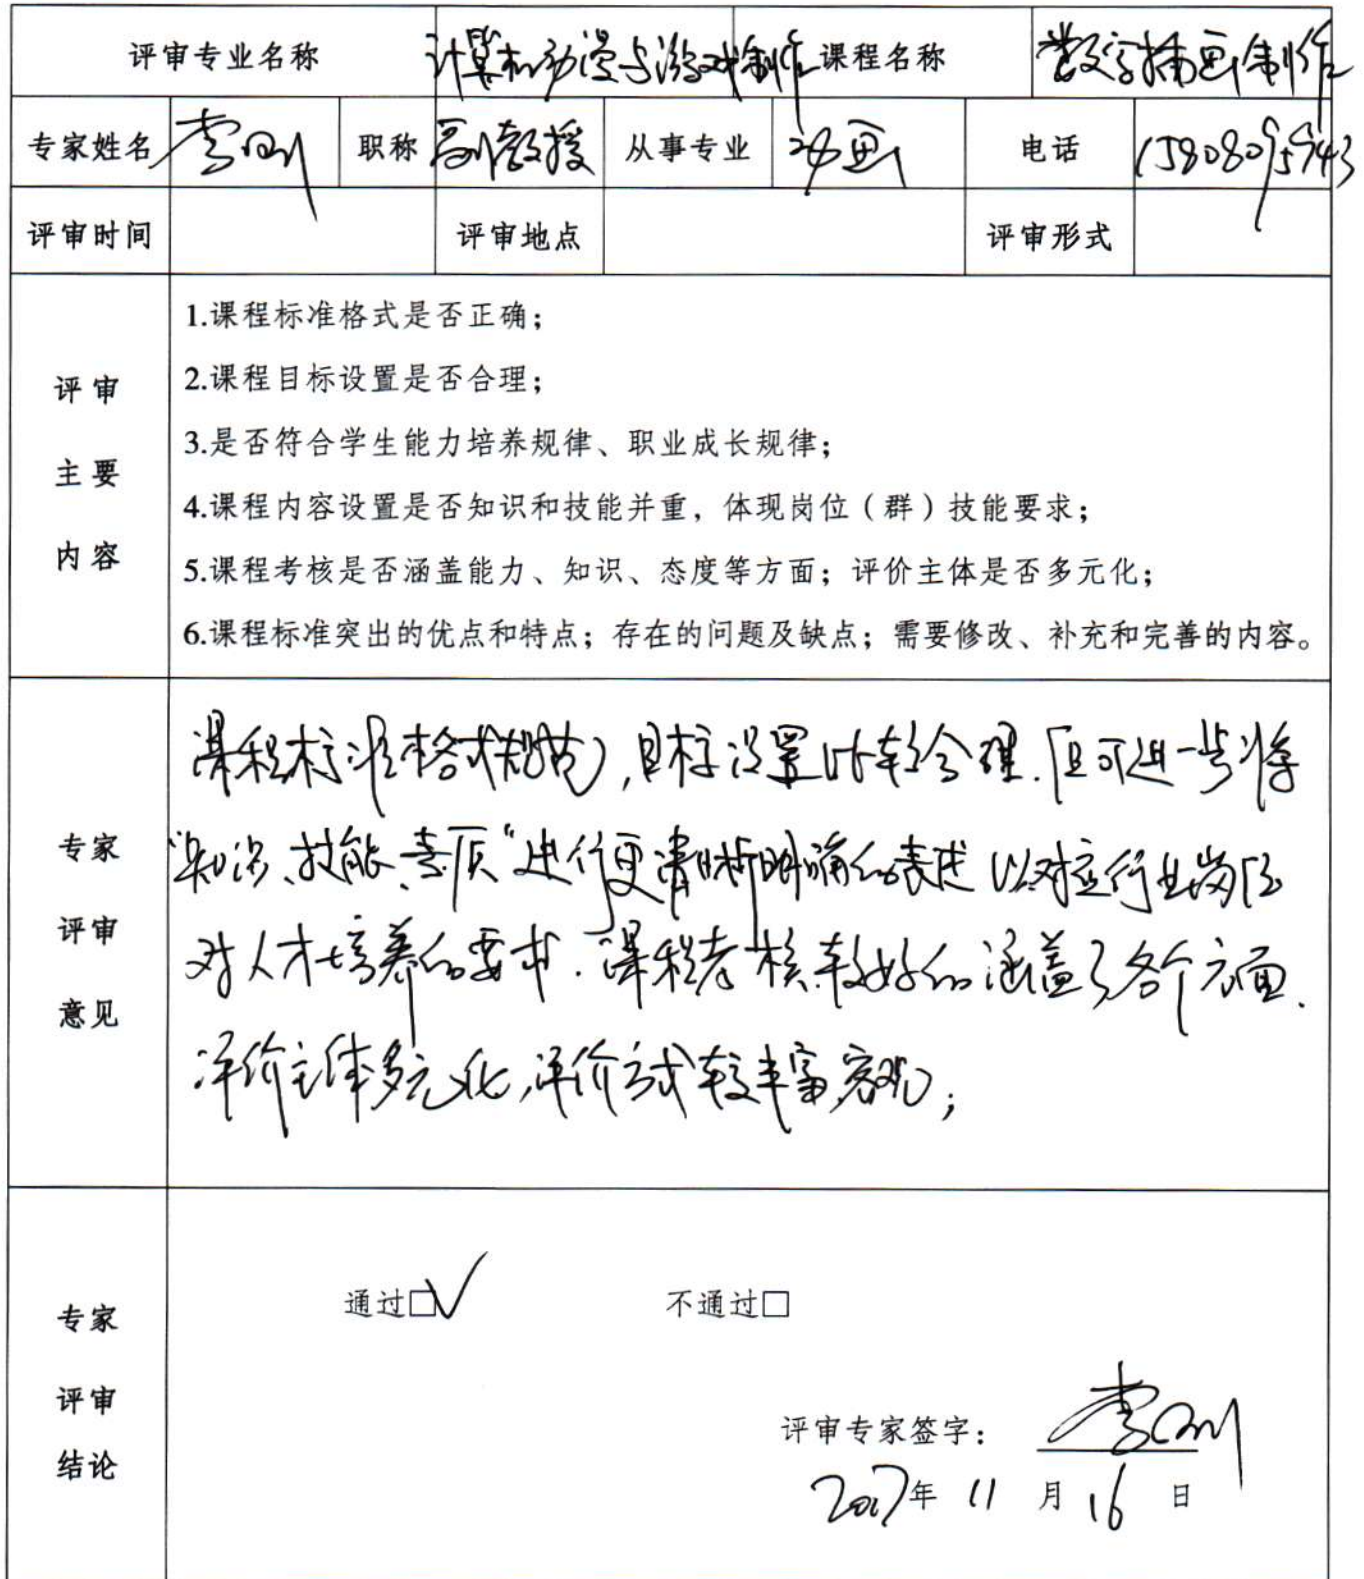 评审专业名称 计算机动漫与游戏制作 课程名称 数字插画制作
专家姓名 李刚 职称 副教授 从事专业 动画 电话
评审时间 评审地点 评审形式
评审主要内容
1.课程标准格式是否正确；
2.课程目标设置是否合理；
3.是否符合学生能力培养规律、职业成长规律；
4.课程内容设置是否知识和技能并重，体现岗位（群）技能要求；
5.课程考核是否涵盖能力、知识、态度等方面；评价主体是否多元化；
6.课程标准突出的优点和特点；存在的问题及缺点；需要修改、补充和完善的内容。
专家评审意见
课程标准格式规范，目标设置比较合理.但可进一步将
“知识、技能、素质”进行更清晰明确的表述 以对应行业岗位
对人才培养的要求.课程考核较好的涵盖了各个方面.
评价主体多元化,评价方式较丰富,客观;
专家评审结论
通过□√ 不通过□
评审专家签字： 李刚
2017年 11 月 16 日